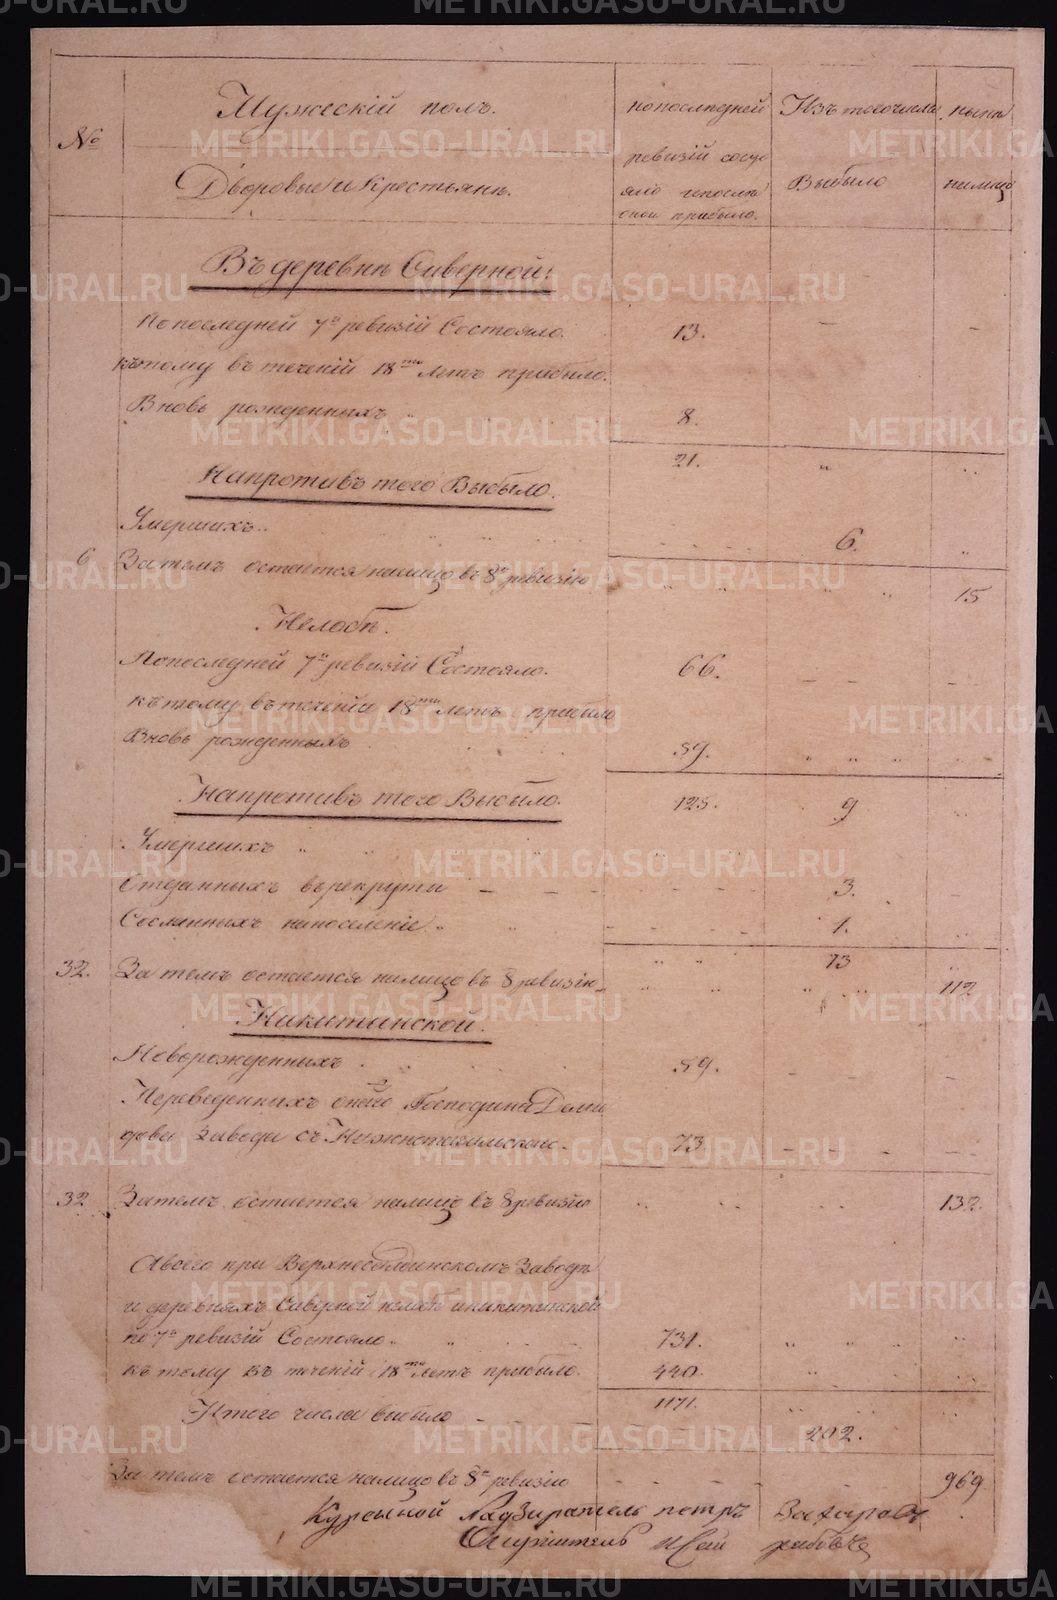 №
Мужескій полъ.
Дворовые и Крестьяне.
по последней ревизій состояло и после оной прибыло.
Изъ того числа Выбыло
ныне налицо
Въ деревне Северной:
По последней 7й ревизій Состояло. 13.
къ тому въ теченій 18ти летъ прибыло.
Вновь рожденныхъ 8.
21.
Напротивъ того Выбыло.
Умершихъ 6.
6 За темъ остается налицо въ 8ю ревизію 15
Нелобе.
По последней 7й ревизій Состояло. 66.
къ тому въ теченіи 18ти летъ прибыло
Вновь рожденныхъ 59.
Напротивъ того Выбыло. 125. 9
Умершихъ
Отданныхъ въ рекруты 3.
Сосланныхъ на поселеніе 1.
13
32. За темъ остается налицо въ 8 ревизію 112
Никитинской.
Новорожденныхъ 59.
Переведенныхъ онаго Господина Демидова Завода съ Нижнетагильскаго 73
32 Затемъ остается налицо въ 8 ревизію 132.
А всего при Верхнесалдинскомъ Заводе
и деревняхъ Северной Нелобе и никитинской
по 7й ревизій Состояло 731.
къ тому въ теченій 18ти летъ прибыло. 440.
1171.
Изтого числа выбыло 202.
За темъ остается налицо въ 8ю ревизію 969
Куренной Надзиратель петръ Захаровъ
Служитель